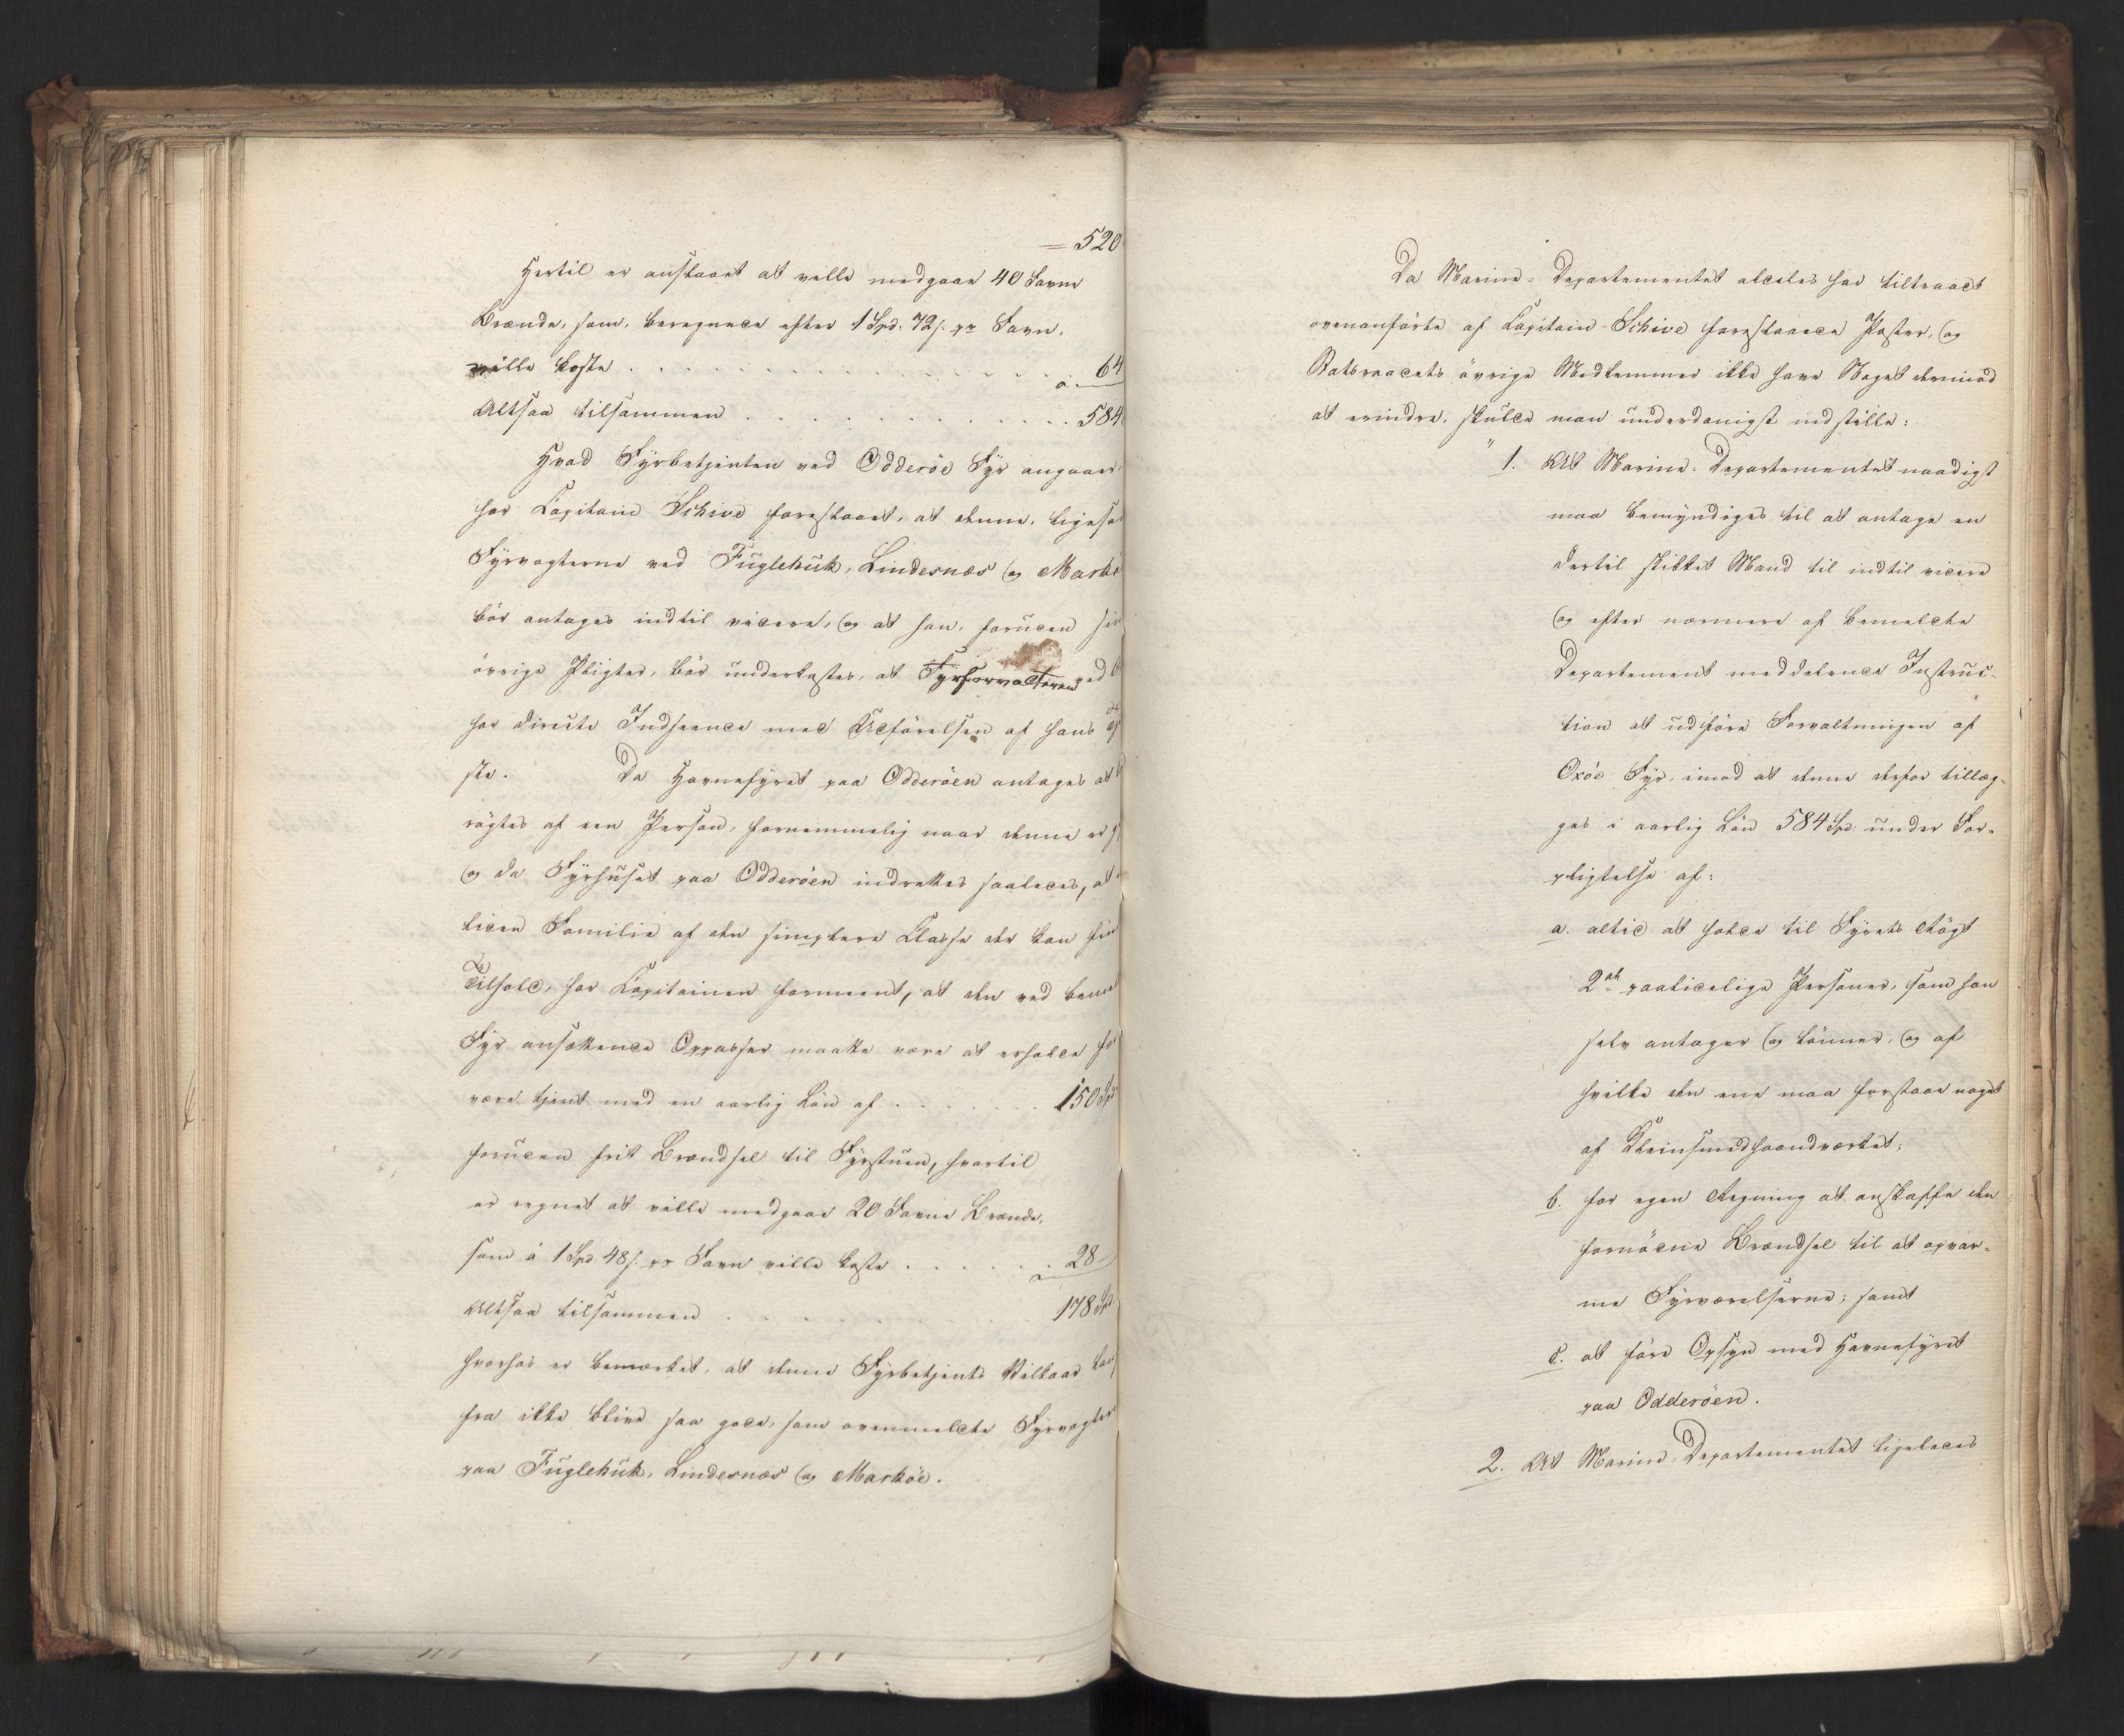 = 520
Hertil er anslaaet at ville medgaae 40 Favne
Brænde, som, beregnede efter 1 Spd: 72 s. pr Favn,
ville koste . . . . . . . . . 64
Altsaa tilsammen . . . . . . . . . 584
Hvad Fyrbetjenten ved Odderöe Fyr angaaer,
har Capitain Schive foreslaaet, at denne, ligesaa
Fyrvogterne ved Fuglehuk, Lindesnæs og Markö
bör antages indtil videre, og at han, foruden sin
övrige Pligter, bör underkastes, at Fyrforvalteren ved
har directe Indseende med Udförelsen af hans
ste. Da Havnefyret paa Odderöen antages at
rögtes af een Person, fornemmelig naar denne er
og da Fyrhuset paa Odderöen indrettes saaledes, at
liden Familie af den simplere Classe der kan fin
Tilhold, har Capitainen formeent, at den ved bemel
Fyr ansættende Oppasser maatte være at erholde for
være tjent med en aarlig Lön af . . . . . . 150 Spd
foruden frit Brændsel til Fyrstuen, hvortil
er regnet at ville medgaae 20 Favne Brænde,
som à 1 Spd 48 s. pr Favn ville koste . . . . . . 28 -
Altsaa tilsammen . . . . . . . . . 178 Spd
hvorhos er bemærket, at denne Fyrbetjents Vilkaar lang
fra ikke blive saa gode, som ovenmeldte Fyrvogter
paa Fuglehuk, Lindesnæs og Marköe.
Da Marine-Departementet aldeles har tiltraadt
ovenanförte af Capitain Schive foreslaaede Poster, og
Statsraadets övrige Medlemmer ikke have Noget derimod
at erindre, skulde man underdanigst indstille:
"1. At Marine-Departementet naadigst
maa bemyndiges til at antage en
dertil skikket Mand til indtil videre
og efter nærmere af bemeldte
Departement meddelende Instruc-
tion at udföre Forvaltningen af
Oxöe Fyr, imod at denne derfor tillæg-
ges i aarlig Lön 584 Spd: under For-
pligtelse af:
a. altid at holde til Fyrets Rögt
2de paalidelige Personer, som han
selv antager og lönner, og af
hvilke den ene maa forstaae noget
af Kleinsmedhaandværket;
b. for egen Regning at anskaffe den
fornödne Brændsel til at opvar-
me Fyrværelserne; samt
c. at före Opsyn med Havnefyret
paa Odderöen.
2. At Marine-Departementet ligeledes